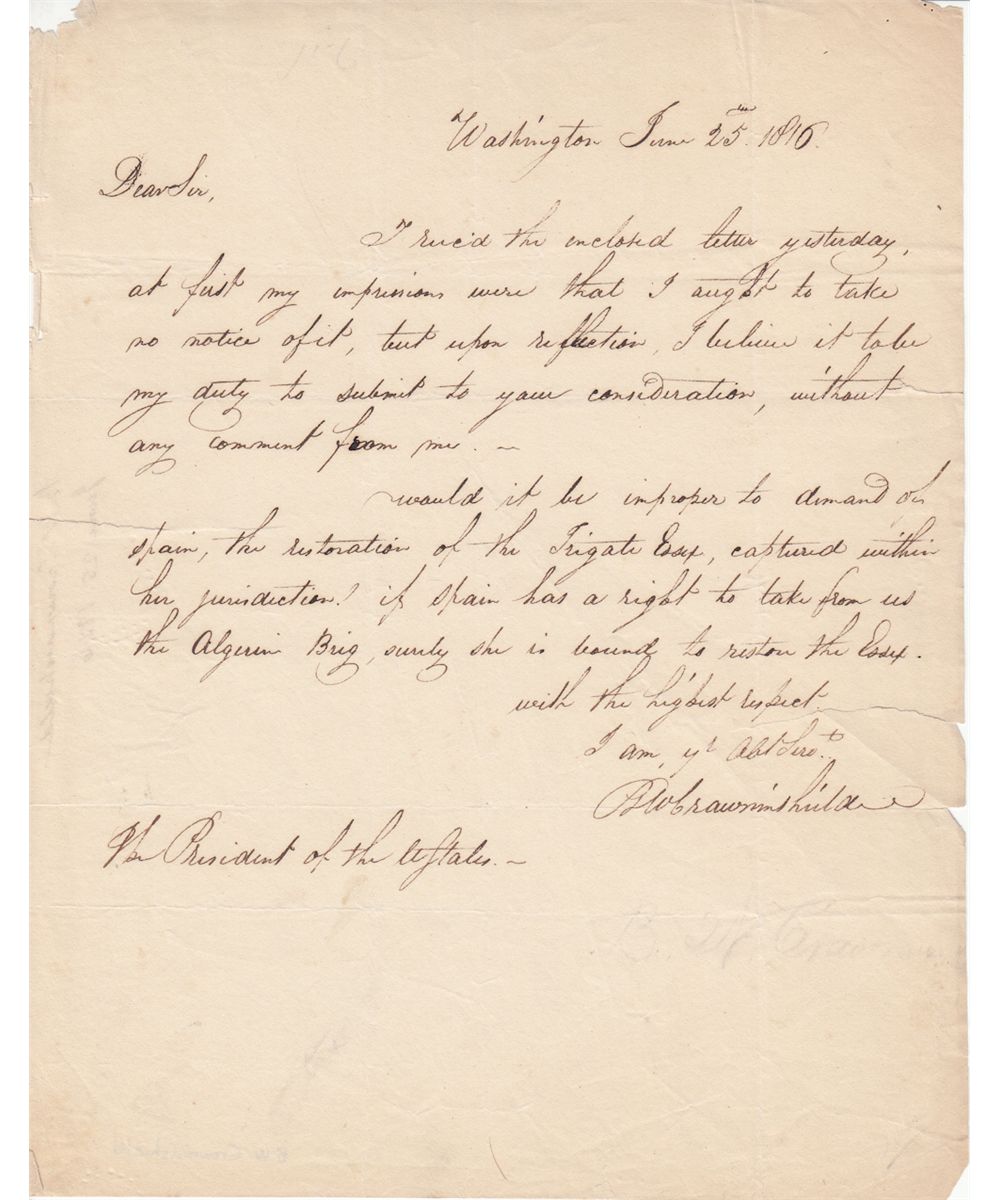 Washington June 25th 1816.
Dear Sir,
I rec'd the enclosed letter yesterday,
at first my impressions were that I aught to take
no notice of it, but upon reflection, I believe it to be
my duty to submit to your consideration, without
any comment from me. –
would it be improper to demand of
Spain, the restoration of the Frigate Essex, captured within
her jurisdiction! if Spain has a right to take from us
the Algerin Brig, surely she is bound to restore the Essex.
with the highest respect.
I am, yr Obt Servt.
BWCrowninshield
The President of the UStates. –